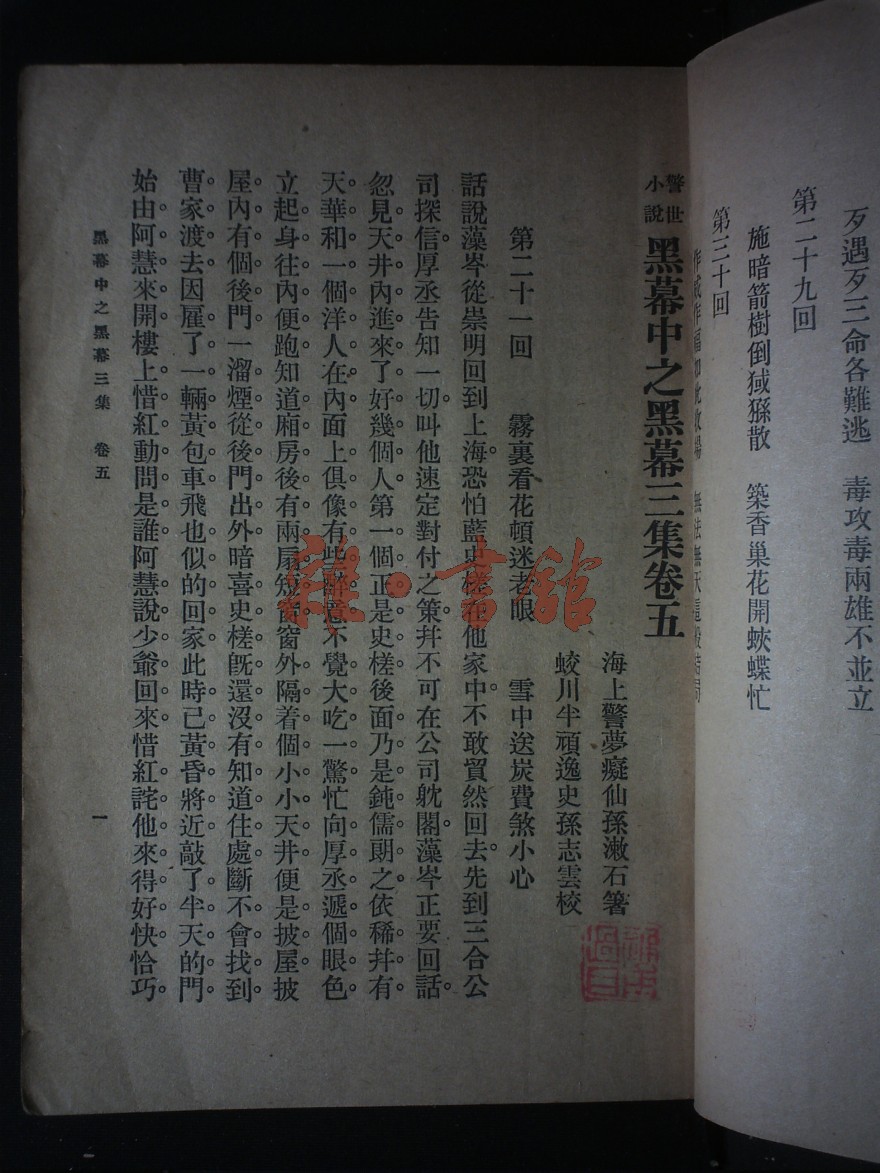 歹遇歹三命各難逃　毒攻毒兩雄不並立
第二十九回
施暗箭樹倒猢猻散　築香巢花開蛺蝶忙
第三十回
無法無天
警世小說　黑幕中之黑幕三集卷五
海上警夢癡仙孫漱石著
蛟川半頑逸史孫志雲校
第二十一回　霧裏看花頓迷老眼　雪中送炭費煞小心
話說藻岑從崇明回到上海。恐怕藍史槎在他家中。不敢貿然回去。先到三合公
司探信。厚丞告知一切。叫他速定對付之策。幷不可在公司躭閣。藻岑正要回話。
忽見天井內進來了好幾個人。第一個正是史槎。後面乃是鈍儒朗之依稀幷有
天華和一個洋人在內。面上俱像有些醉意。不覺大吃一驚。忙向厚丞遞個眼色。
立起身往內便跑。知道廂房後有兩扇短窗。窗外隔着個小小天井。便是披屋。披
屋內有個後門。一溜煙從後門出外。暗喜史槎旣還沒有知道住處。斷不會找到
曹家渡去。因雇了一輛黃包車。飛也似的回家。此時已黃昏將近。敲了半天的門。
始由阿慧來開。樓上惜紅動問是誰。阿慧說少爺回來。惜紅詫他來得好快。恰巧
黑幕中之黑幕三集　卷五
一
雜·書館